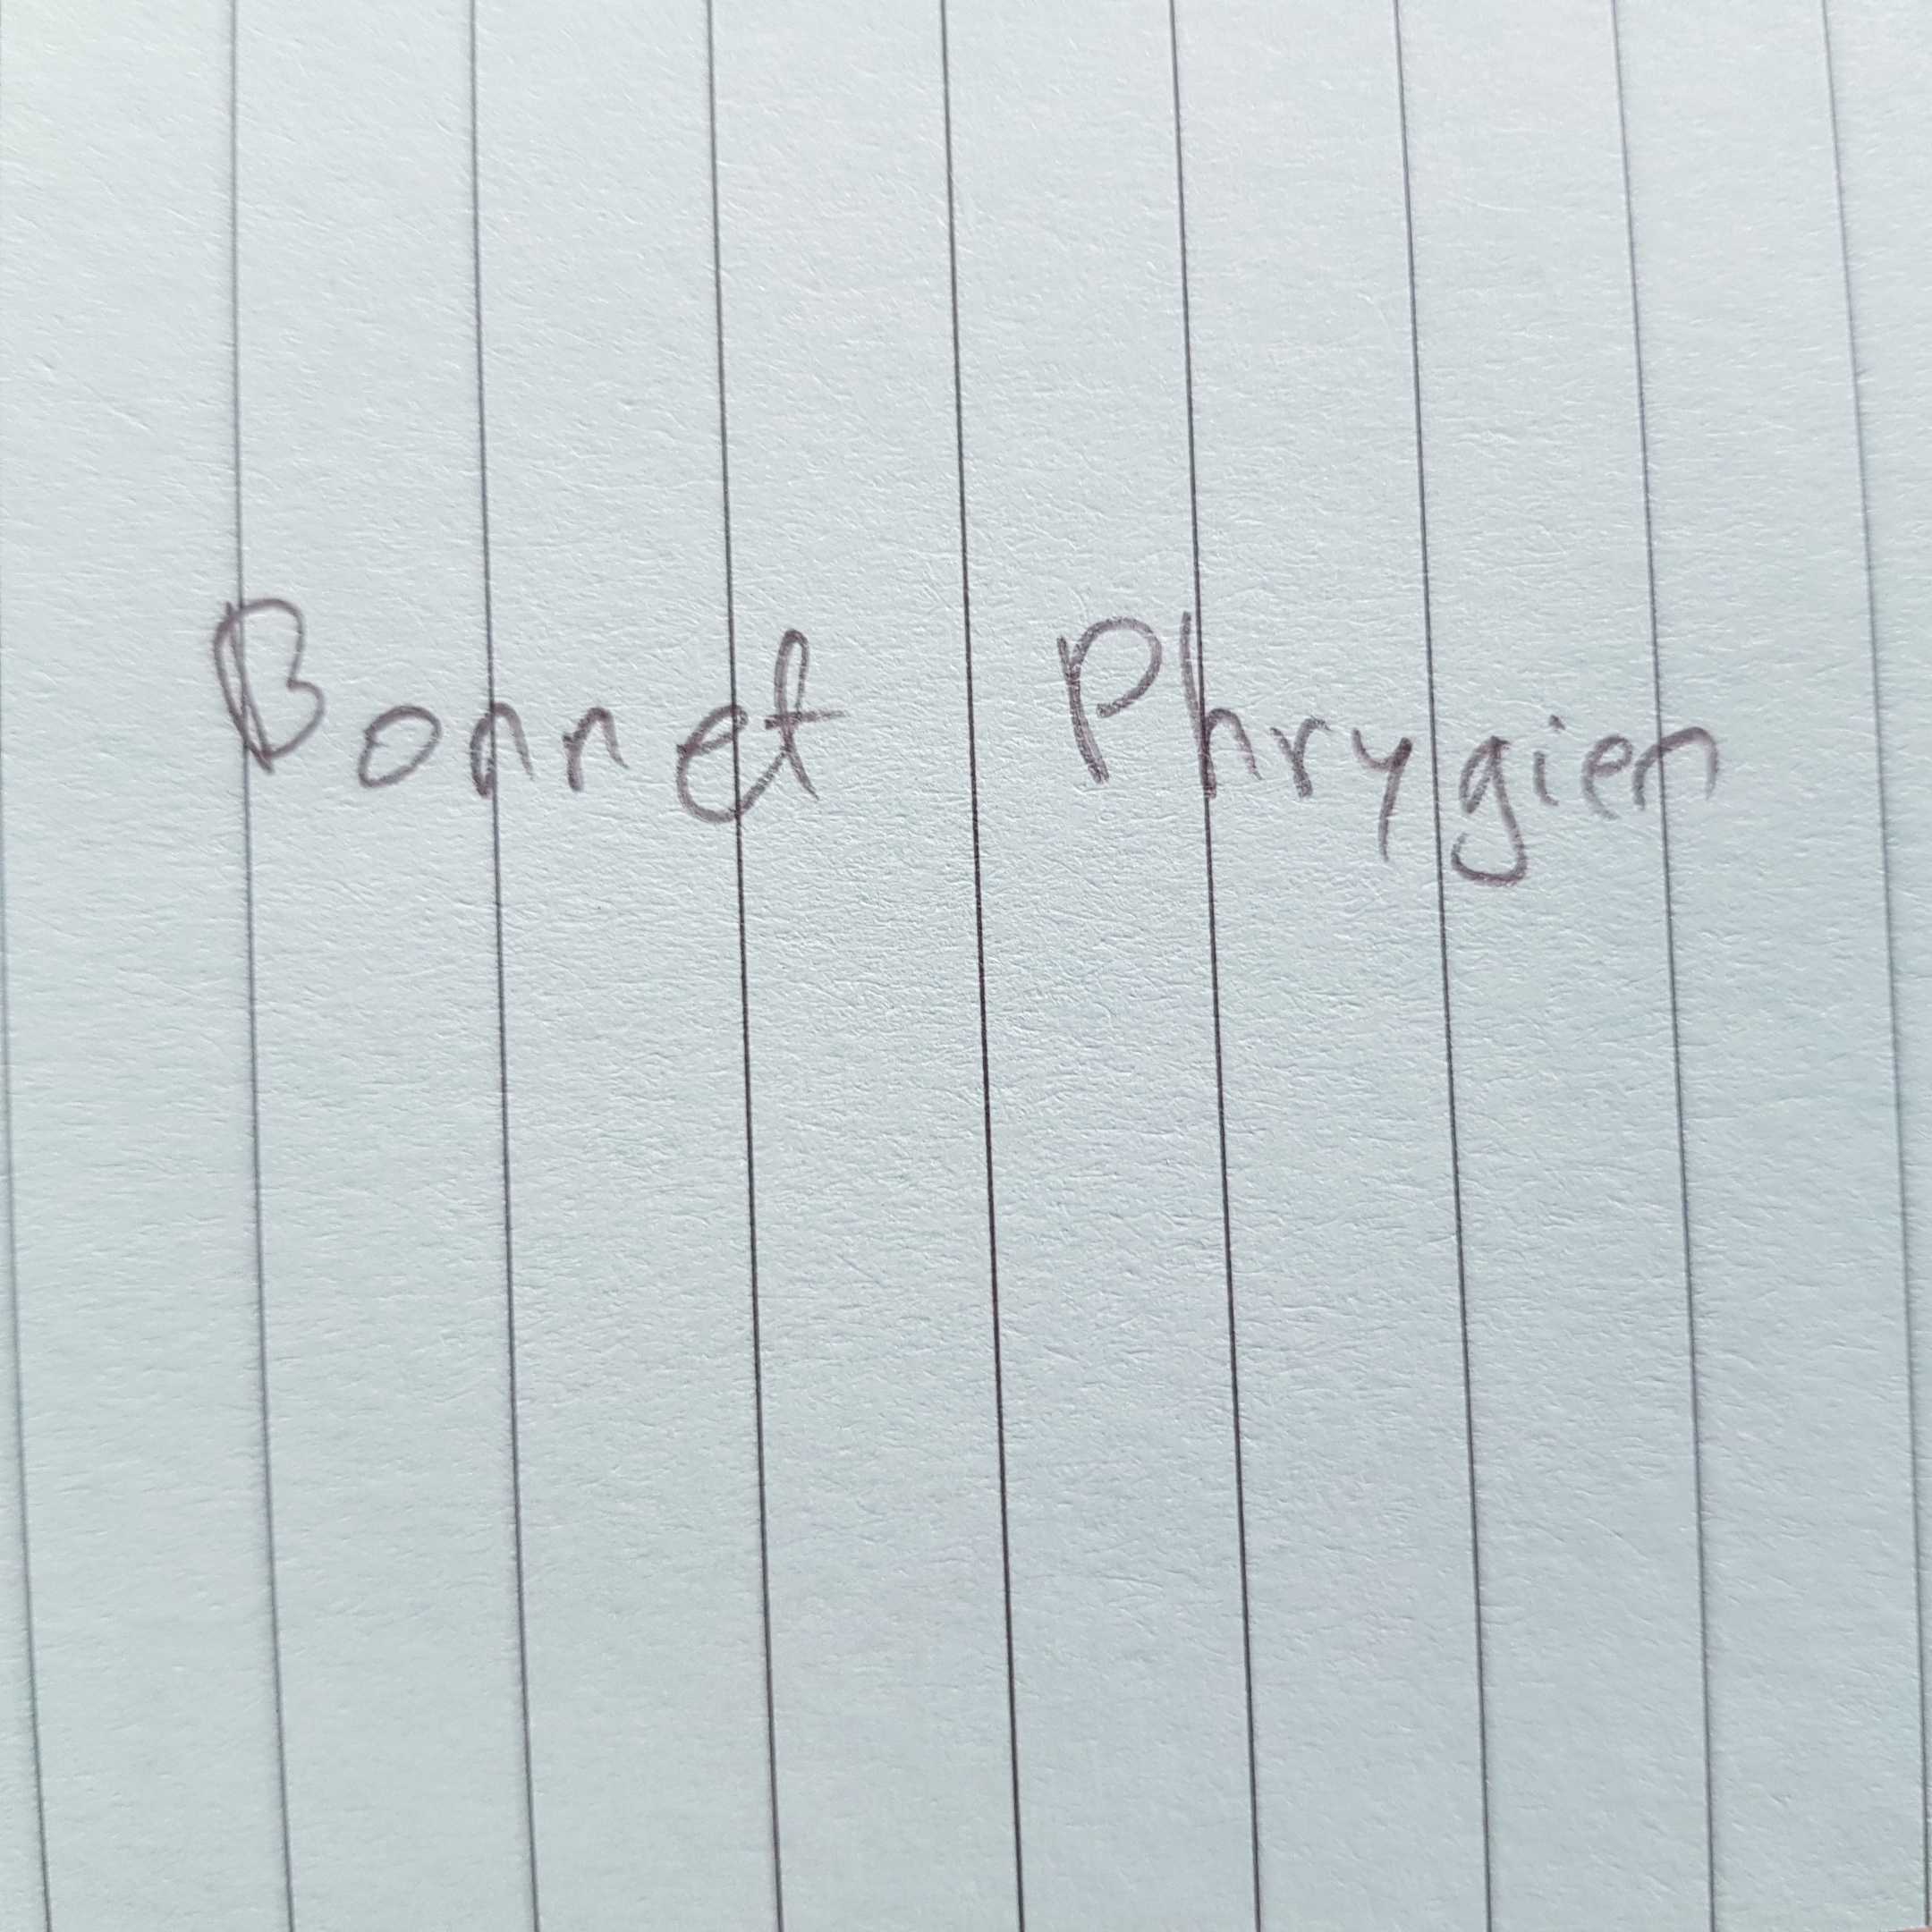 Bonnet Phrygien